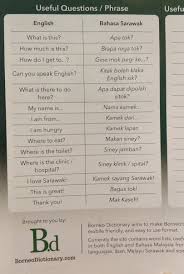 Useful Questions / Phrase
Usefu
English
Bahasa Sarawak
What is this?
Apa tok?
How much is this?
Brapa rega tok?
How do I get to..?
Gine mok pegi ke...?
Can you speak English?
Kitak boleh klaka
English sik?
What is there to do
here?
Apa dapat dipolah
sitok?
My name is...
Nama kamek...
I am from...
Kamek dari...
I am hungry
Kamek lapar.
Where to eat?
Makan siney?
Where is the toilet?
Siney jamban?
Where is the clinic /
hospital?
Siney klinik / spital?
I love Sarawak!
Kamek sayang Sarawak!
This is great!
Bagus tok!
Thank you!
Mak Kaseh!
Brought to you by:
Bd
BorneoDictionary.com
Borneo Dictionary aims to make Borneo
mobile friendly, and easy to use format.
Currently the site contains word lists
in both English and Bahasa Malaysia
languages: Iban, Melayu Sarawak and